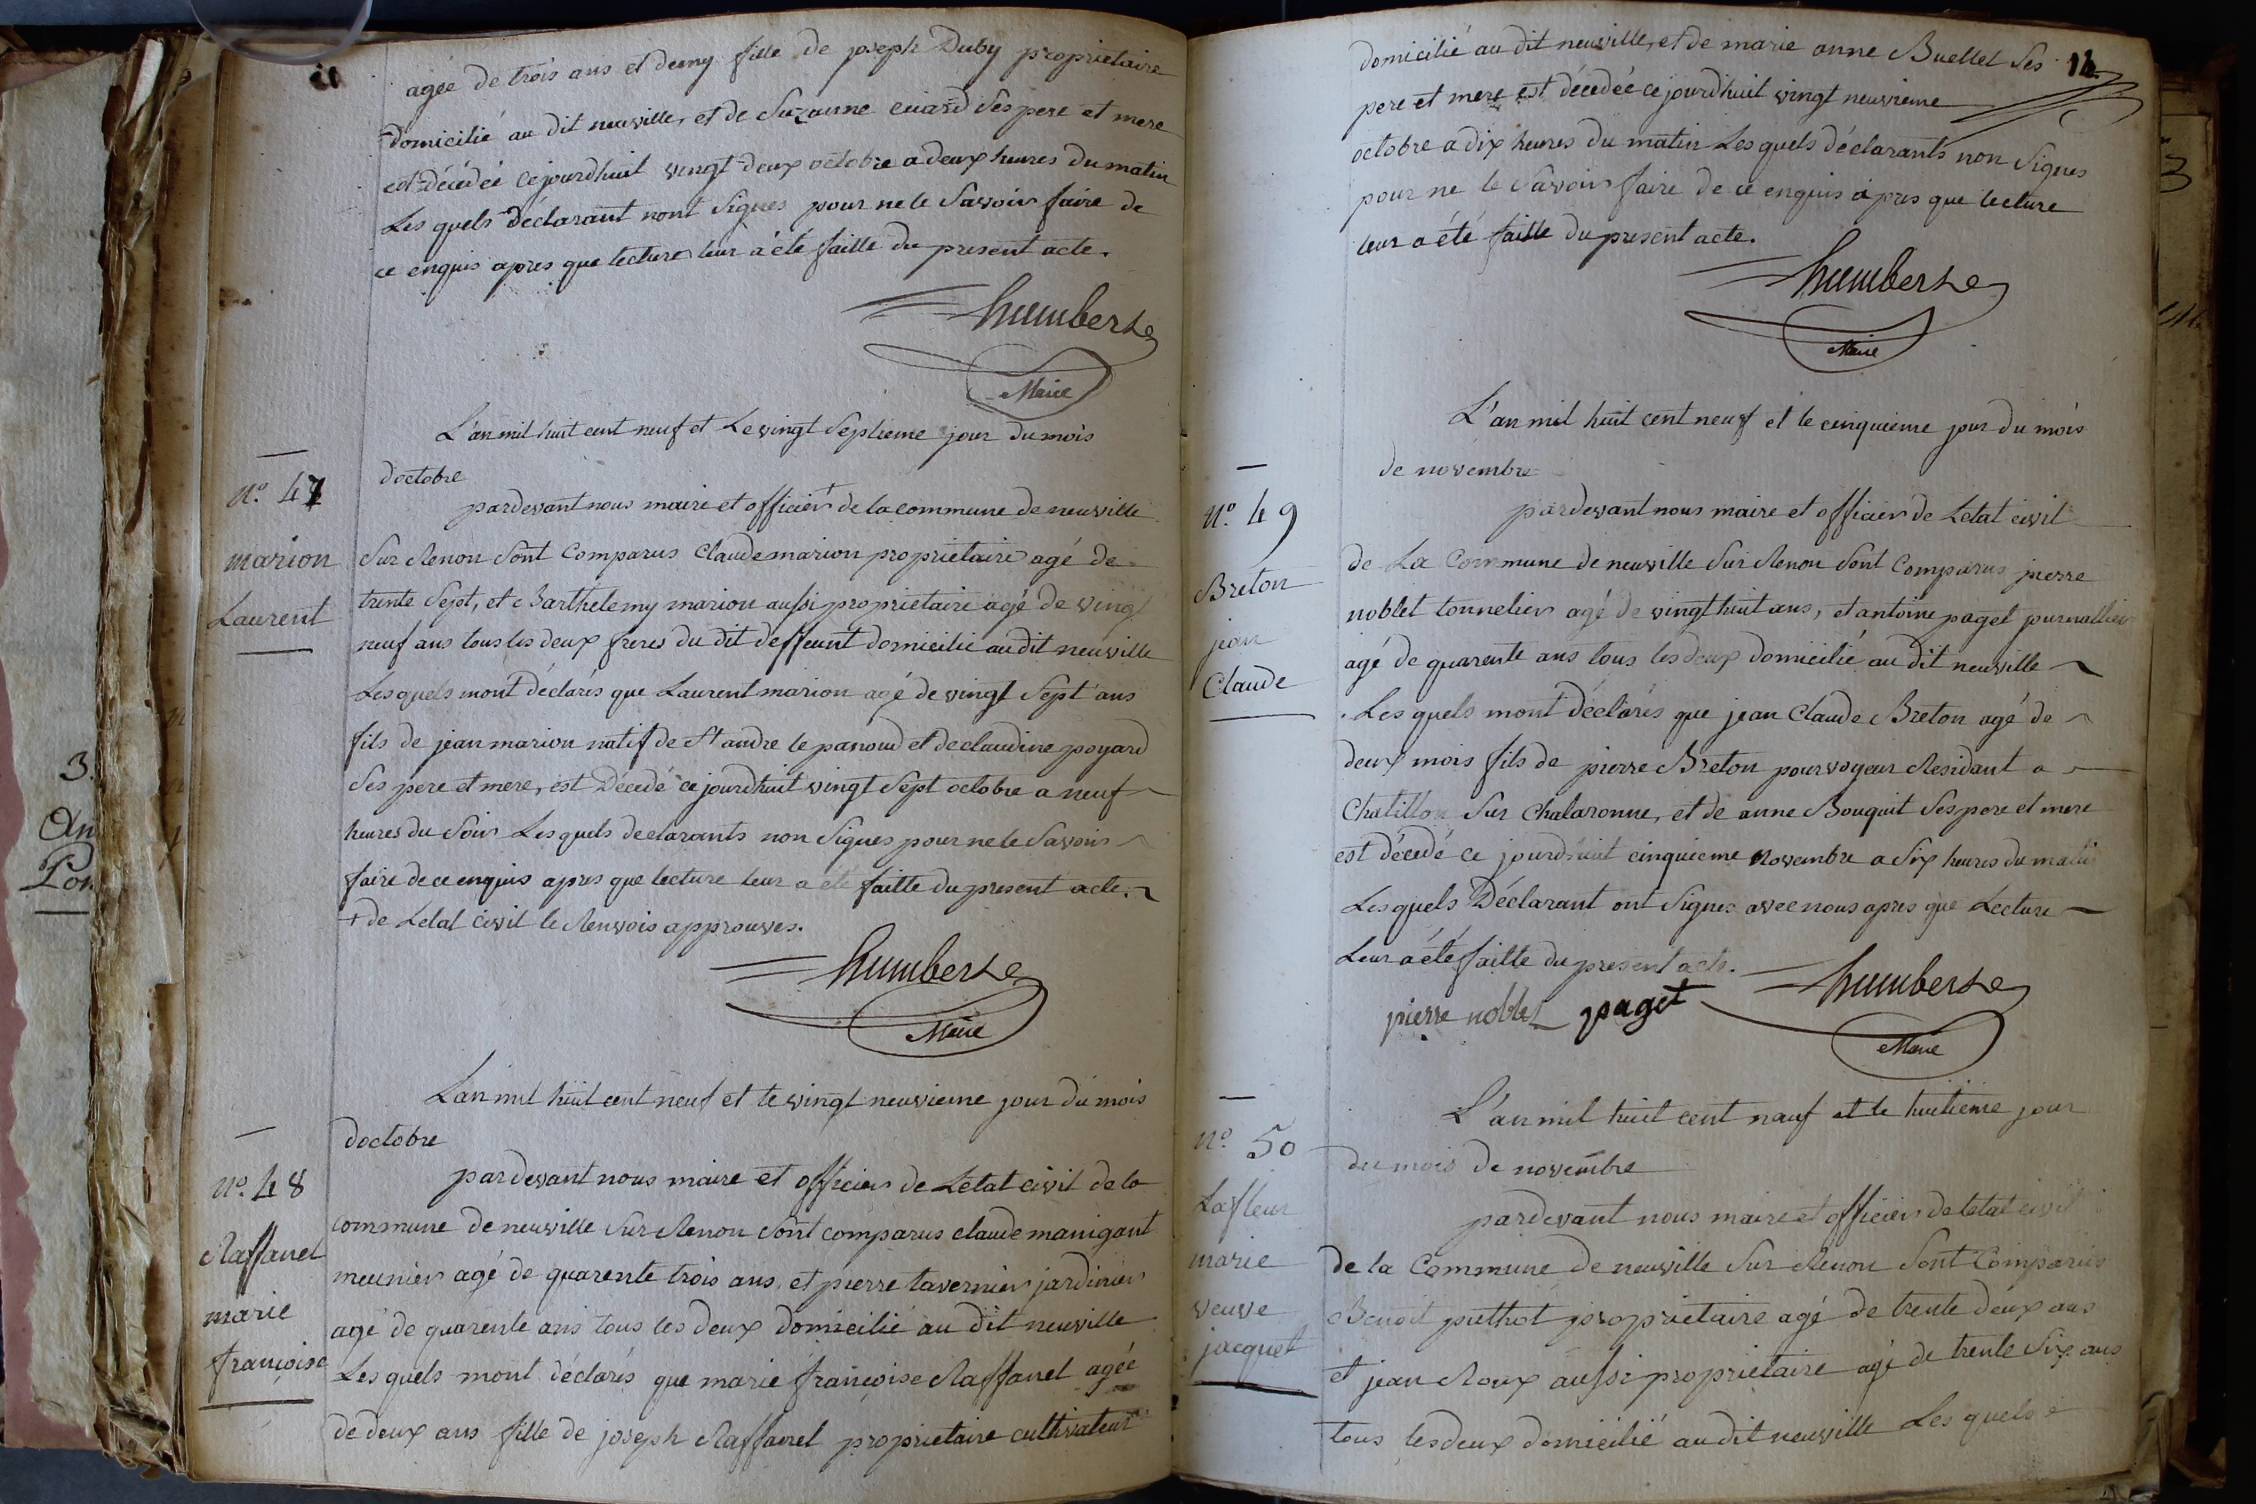 agée de trois ans et demy fille de joseph Duby proprietaire
domicilié au dit neuville, et de Suzanne cuiard Ses pere et mere
est décédée cejourdhuit vingt-deux octobre a deux heures du matin
Les quels déclarant nont Signes pour ne le Savoir faire de
ce enquis apres que lecture leur a été faitte du present acte.
humbert
Maire
L'an mil huit cent neuf et Le vingt Septieme jour du mois
doctobre
N.º 47
marion
Laurent
pardevant nous maire et officier + de la commune de neuville
Sur Renon Sont Comparus Claude marion proprietaire agé de
trente Sept, et Barthelemy marion aussi proprietaire agé de vingt
neuf ans tous les deux freres du dit deffeunt domicilié au dit neuville
Les quels mont déclarés que Laurent marion agé de vingt Sept ans
fils de jean marion natif de St andre le panoud et de claudine poyard
Ses pere et mere, est Décedé ce jourdhuit vingt Sept octobre a neuf
heures du Soir Les quels declarants non Signes pour ne le Savoir
faire de ce enquis apres que lecture leur a été faitte du present acte.
+ de Letat Civil le Renvois approuves.
humbert
Maire
L'an mil huit cent neuf et le vingt neuvieme jour du mois
doctobre
N.º 48
Raffanel
marie
françoise
pardevant nous maire et officier de Letat civil de la
commune de neuville Sur Renon Sont comparus claude manigant
meunier agé de quarente trois ans, et pierre tavernier jardinier
agé de quarente ans tous les deux domicilié au dit neuville
Les quels mont déclarés que marie françoise Raffanel agée
de deux ans fille de joseph Raffanel proprietaire cultivateur
14.
domicilié au dit neuville, et de marie anne Buellet Ses
pere et mere est décedée ce jourdhuit vingt neuvieme
octobre a dix heures du matin Les quels déclarants non Signes
pour ne le Savoir faire de ce enquis apres que lecture
leur a été faitte du present acte.
humbert
Maire
L'an mil huit cent neuf et le cinquieme jour du mois
de novembre
N.º 49
Breton
jean
Claude
pardevant nous maire et officier de Letat civil
de La Commune de neuville Sur Renon Sont Comparus pierre
noblet tonnelier agé de vingt huit ans, et antoine paget journallier
agé de quarente ans tous les deux domicilié au dit neuville
Les quels mont déclarés que jean Claude Breton agé de
deux mois fils de pierre Breton pourvoyeur Residant a
Chatillon Sur Chalaronne, et de anne Bouquit Ses pere et mere
est décedé ce jourdhuit cinquieme novembre a Six heures du matin
Les quels Déclarant ont Signes avec nous apres que Lecture
Leur a été faitte du present acte.
humbert
pierre noblet paget
Maire
L'an mil huit cent neuf et le huitieme jour
du mois de novembre
N.º 50
Lafleur
marie
veuve
jacquet
pardevant nous maire et officier de letat civil
de la Commune de neuville Sur Renon Sont Comparus
Benoit puthot proprietaire agé de trente deux ans
et jean Roux aussi proprietaire agé de trente Six ans
tous les deux domicilié au dit neuville Les quels